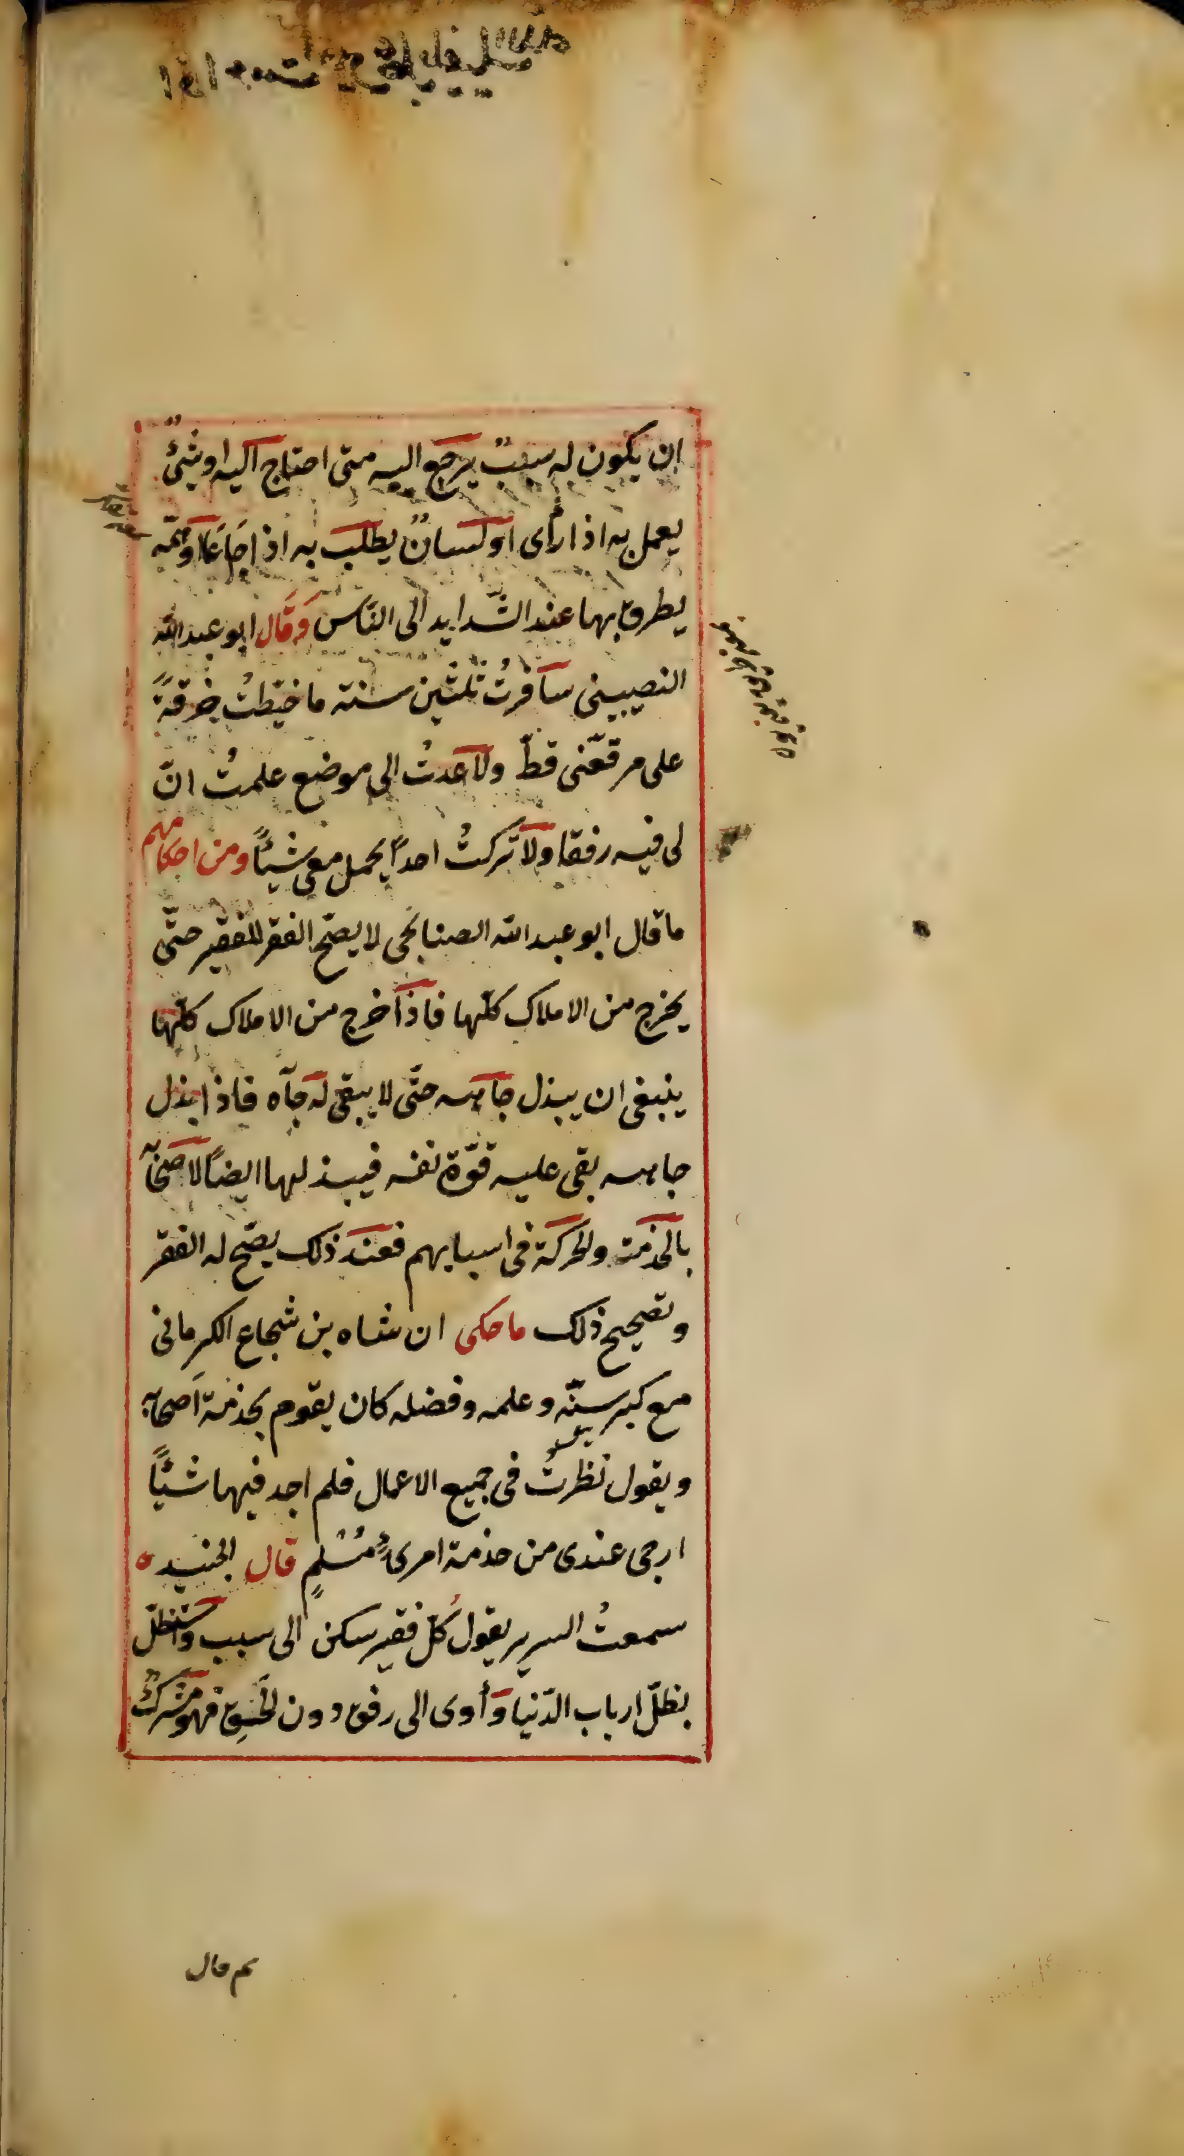 ان يكون له سببٌ يرجع اليه متى احتاج اليه او شئٌ
يعمل به اذا رأى او لسانٌ يطلب به اذا جَاعَ او همّه
يطرق بها عند الشّدايد الى النّاس وَقَال ابو عبد الله
النصيبينى سَافرتُ ثلثين سنة ما خيّطتُ خرقةً
على مرقعّتى قطّ ولا عدتُ الى موضع علمتُ انّ
لى فيه رفقا ولا تركتُ احداً يحمل معى شيئاً ومن احكامهم
ما قال ابو عبد الله الصنابحى لا يصّح الفقر للفقير حتّى
يخرج من الاملاك كلّها فاذا خرج من الاملاك كلّها
ينبغى ان يبذل جاهه حتّى لا يبقى له جآه فاذا بذل
جاهه بقى عليه قوّة نفسه فيبذلها ايضاً لاصحابه
بالخدمت والحركة فى اسبابهم فعند ذلك يصّح له الفقر
وتصحيح ذلك ما حكى ان شاه بن شجاع الكرمانى
مع كبر سنّه وعلمه وفضله كان يقوم بخدمة اصحابه
ويقول نظرتُ فى جميع الاعمال فلم اجد فيها شيئاً
ارجى عندى من خدمة امرىءٍ مُسْلمٍ قال الجنيد ه
سمعتُ السرير يقول كُلّ فقير سكن الى سبب واستظلّ
بظلّ ارباب الدّنيا وَأوى الى رفق دون الحَقِّ فهو مشركٌ
ثم قال